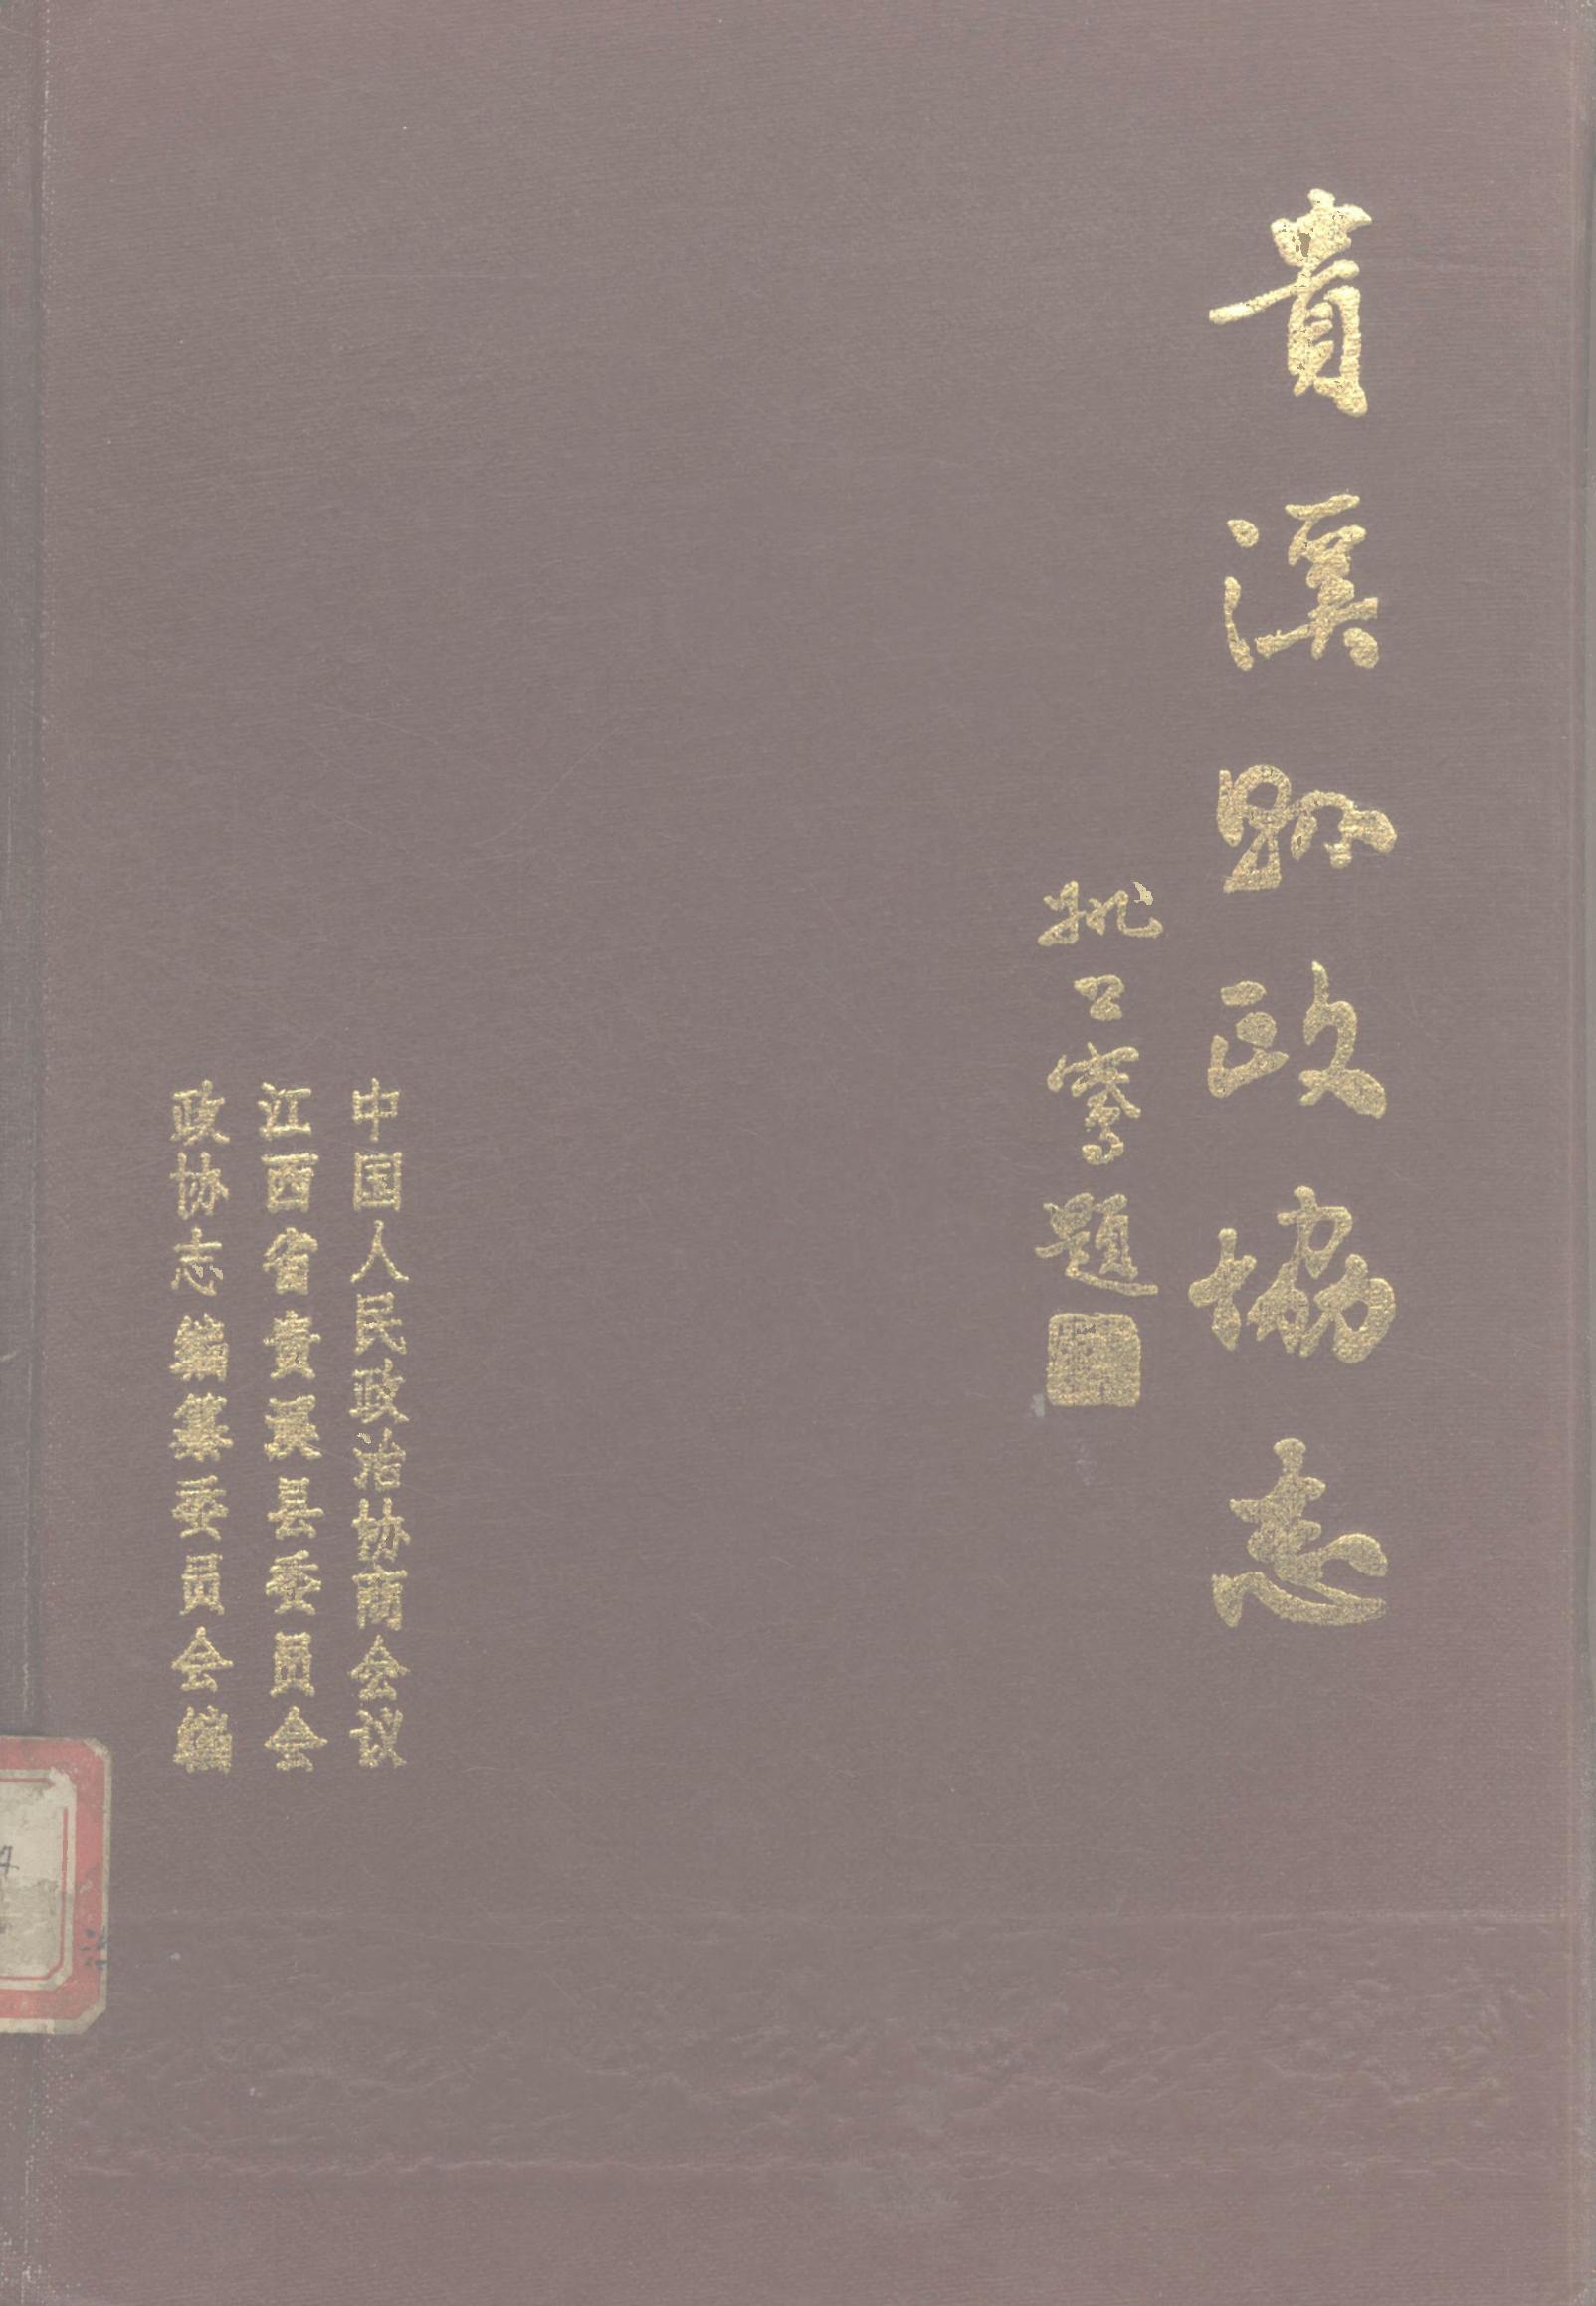 貴溪縣政協志
姚公騫題
中国人民政治协商会议
江西省贵溪县委员会
政协志编纂委员会编